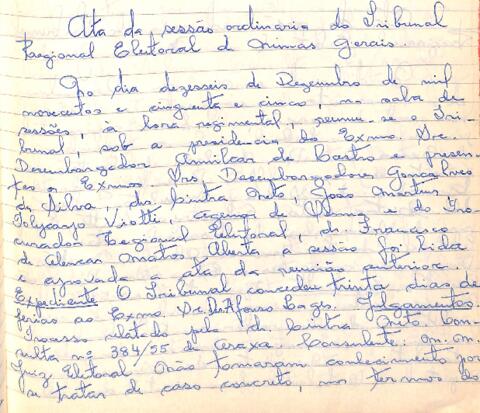 Ata da sessão ordinária do Tribunal
Regional Eleitoral de Minas Gerais.
Ao dia dezesseis de Dezembro de mil
novecentos e cinquenta e cinco, na sala de
sessões, à hora regimental, reuniu-se o Tri-
bunal, sob a presidencia do Exmo. Snr.
Desembargador Amilcar de Castro e presen-
tes os Exmos. Srs. Desembargadores Gonçalves
da Silva, drs. Cintra Neto, João Martins,
Policarpo Viotti, de Vianna e do Pro-
curador Regional Eleitoral, dr. Francisco
de Alencar Mattos. Aberta a sessão foi lida
e aprovada a ata da reunião anterior.
Expediente O Tribunal concedeu trinta dias de
férias ao Exmo. Dr. Afonso Julgamentos.
Processo relatado pelo dr. Cintra Neto Con-
sulta nº 384/55 de Consulente: M. M.
Juiz Eleitoral Não tomaram conhecimento por
se tratar de caso concreto, nos termos do